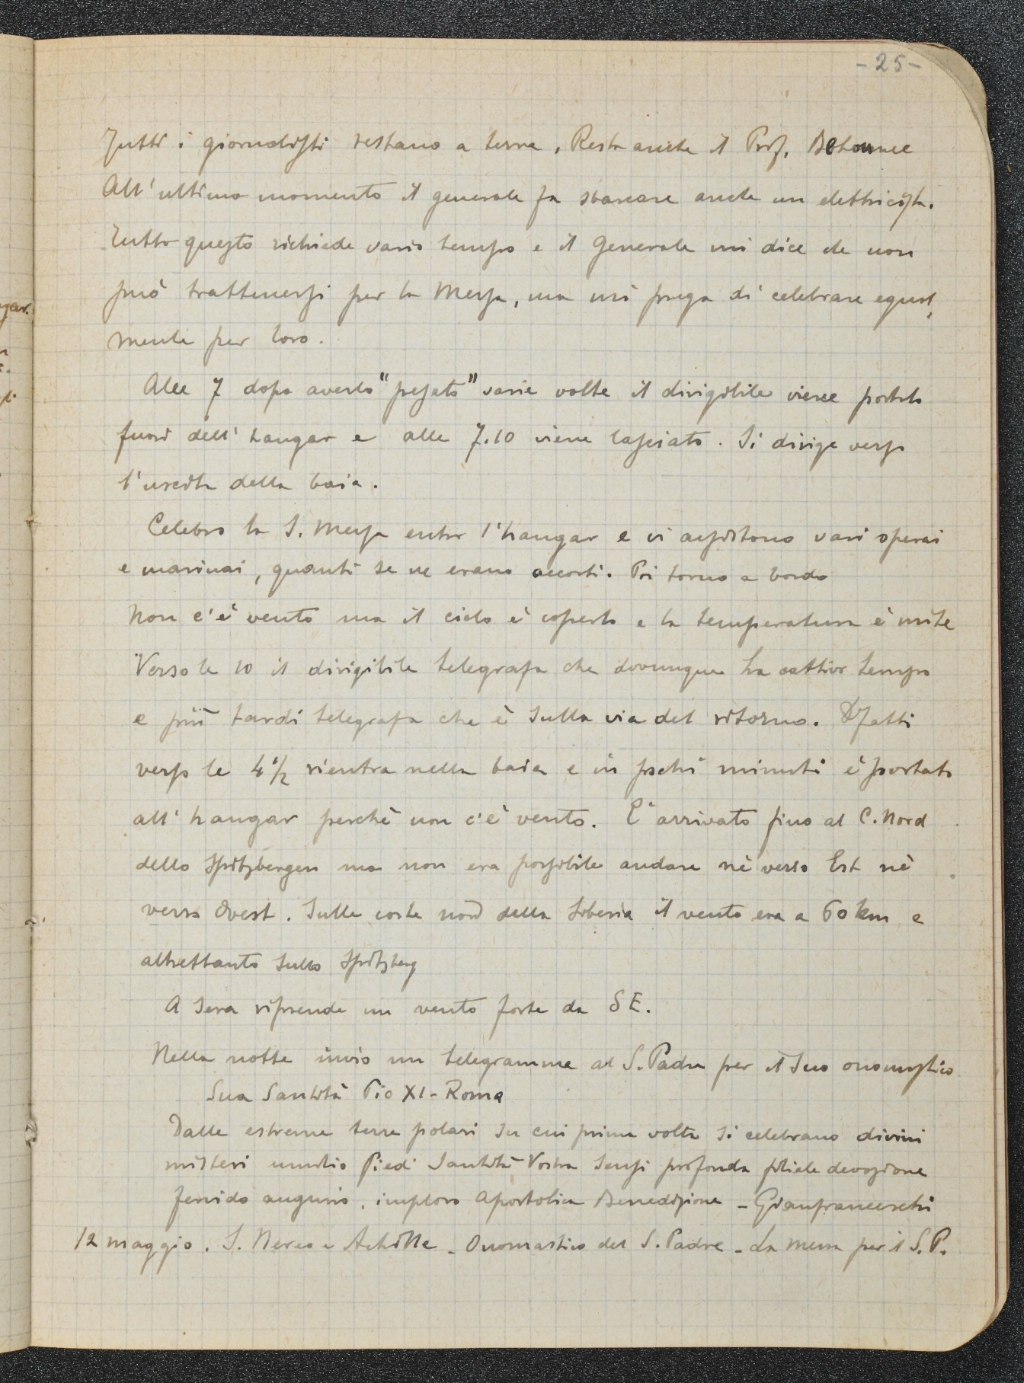 - 25 -
Tutti i giornalisti restano a terra. Resta anche il Prof. Behounec
All'ultimo momento il generale fa sbarcare anche un elettricista.
Tutto questo richiede vario tempo e il Generale mi dice che non
può trattenersi per la Messa, ma mi prega di celebrare egual,
mente per loro.
Alle 7 dopo averlo "pesato" varie volte il dirigibile viene portato
fuori dell'hangar e alle 7.10 viene lasciato. Si dirige verso
l'uscita della baia.
Celebro la S. Messa entro l'hangar e vi assistono vari operai
e marinai, quanti se ne erano accorti. Poi torno a bordo
Non c'è vento ma il cielo è coperto e la temperatura è mite
Verso le 10 il dirigibile telegrafa che dovunque ha cattivo tempo
e più tardi telegrafa che è sulla via del ritorno. Difatti
verso le 4 1/2 rientra nella baia e in pochi minuti è portato
all'hangar perchè non c'è vento. E' arrivato fino al C. Nord
dello Spitzbergen ma non era possibile andare nè verso Est nè
verso Ovest. Sulle coste nord della Siberia il vento era a 60 km e
altrettanto sullo Spitzberg
A sera riprende un vento forte da SE.
Nella notte invio un telegramma al S. Padre per il suo onomastico
Sua Santità Pio XI - Roma
Dalle estreme terre polari su cui prima volta si celebrano divini
misteri umilio Piedi Santità Vostra sensi profonda filiale devozione
fervido augurio, imploro Apostolica Benedizione - Gianfranceschi
12 maggio. S. Nereo e Achille - Onomastico del S. Padre - La messa per il S. P.
ngar.